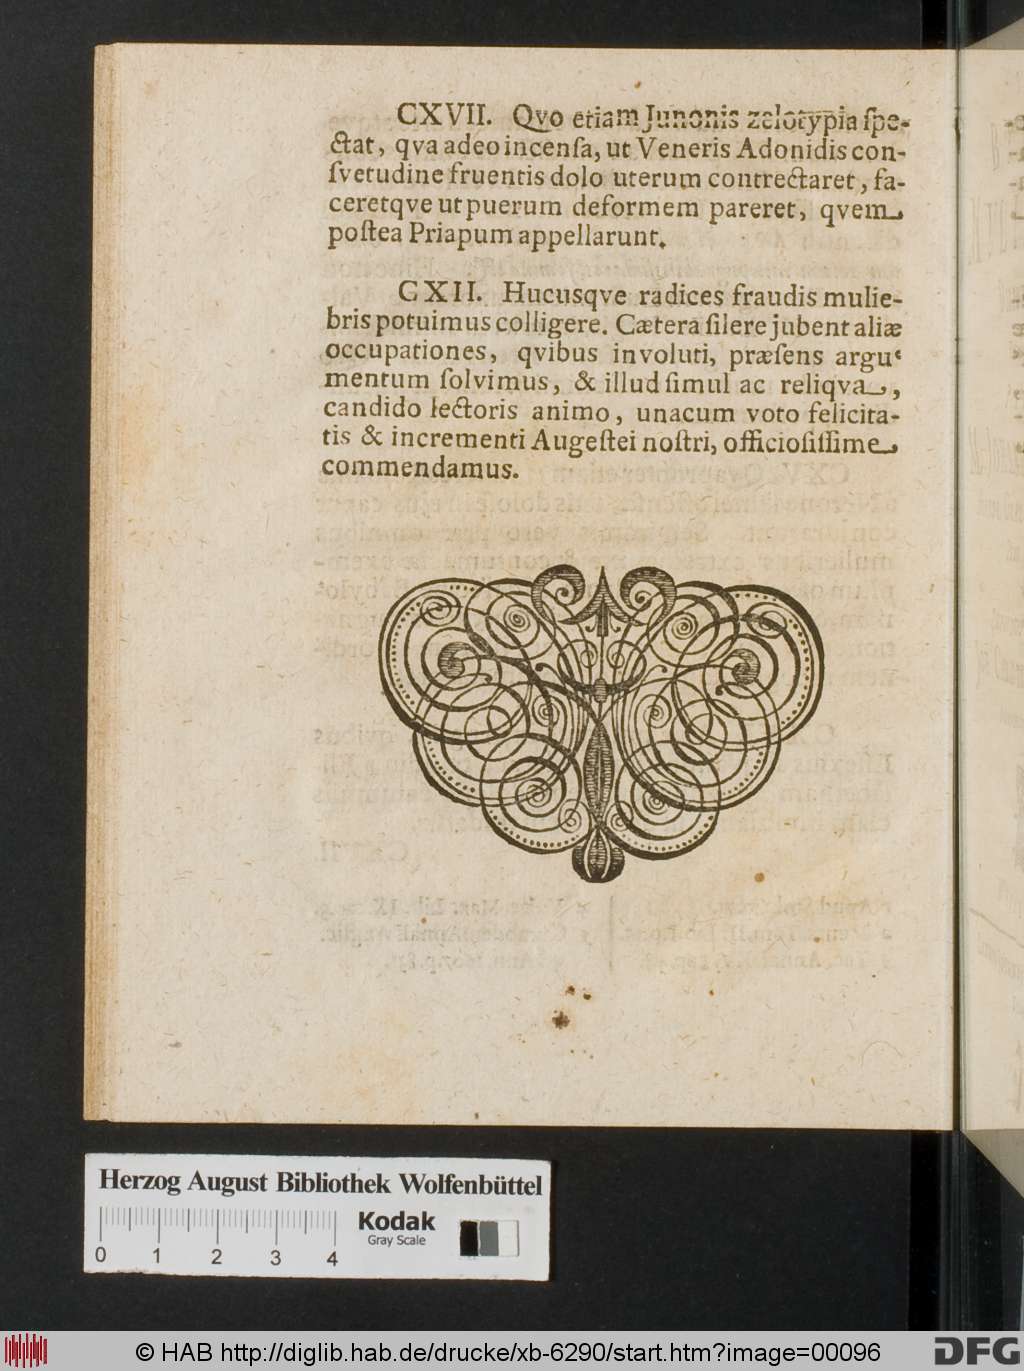 CXVII. Qvo etiam Junonis zelotypia ſpe-
ctat, qva adeo incenſa, ut Veneris Adonidis con-
ſvetudine fruentis dolo uterum contrectaret, fa-
ceretqve ut puerum deformem pareret, qvem
poſtea Priapum appellarunt.
CXII. Hucusqve radices fraudis mulie-
bris potuimus colligere. Cætera ſilere jubent aliæ
occupationes, qvibus involuti, præſens argu-
mentum ſolvimus, & illud ſimul ac reliqva,
candido lectoris animo, unacum voto felicita-
tis & incrementi Augeſtei noſtri, officioſiſſime
commendamus.
Herzog August Bibliothek Wolfenbüttel
Kodak
Gray Scale
0 1 2 3 4
© HAB http://diglib.hab.de/drucke/xb-6290/start.htm?image=00096
DFG